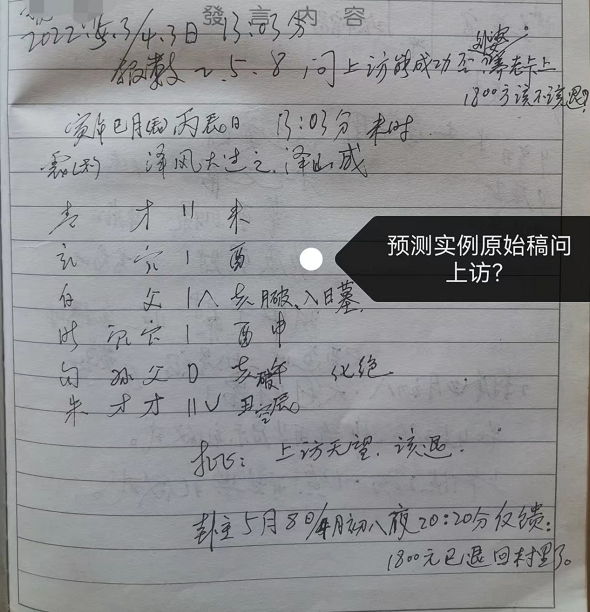 發言内容
2022年5.3/4.3日13:03分
报数2.5.8问上访能成功否
1800方该不该退?
寅年巳月 丙辰日 13:03分 未时
泽风大过之泽山咸
才 〃 未
预测实例原始稿问上访?
玄 官 | 酉
白 父 |∧ 亥月破、入日墓
官 | 酉申
勾 孙父 午 化绝
朱 才才 〃∨ 丑空辰
批: 上访无望.该退.
卦主5月8日/4月初八夜20:20分反馈:
1800元已退回村里了。